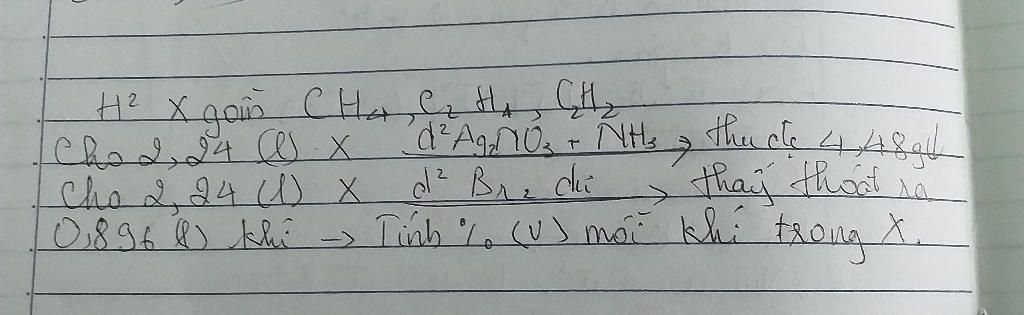 H² X gồm CH4, C2H4, C2H2
Cho 2,24 (l) X d² AgNO3 + NH3 → thu đc 4,48g↓
Cho 2,24 (l) X d² Br2 dư → thấy thoát ra
0,896 (l) khí → Tính % (V) mỗi khí trong X.